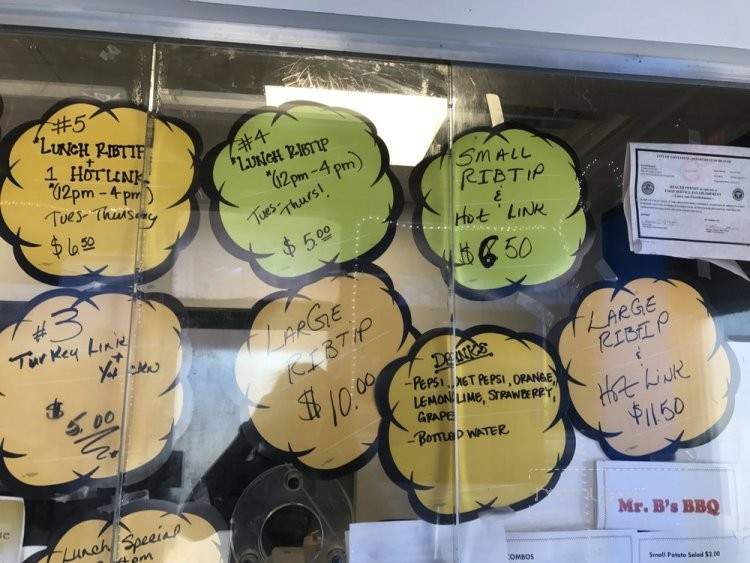 #5
*LUNCH RIBTIP
+
1 HOTLINK
*(12pm-4pm)
Tues-Thursday
$6.50
#4
*LUNCH RIBTIP
*(12pm-4pm)
Tues-Thurs!
$5.00
SMALL
RIBTIP
&
HOT LINK
$6.50
CITY OF
HEALTH PERMIT
FOOD SERVICE ESTABLISHMENT
#3
Turkey Link
+
$5.00
LARGE
RIBTIP
$10.00
DRINKS
-PEPSI, DIET PEPSI, ORANGE,
LEMON LIME, STRAWBERRY,
GRAPE
-BOTTLED WATER
LARGE
RIBTIP
&
HOT LINK
$11.50
Mr. B's BBQ
Lunch Special
COMBOS
Small Potato Salad $2.00